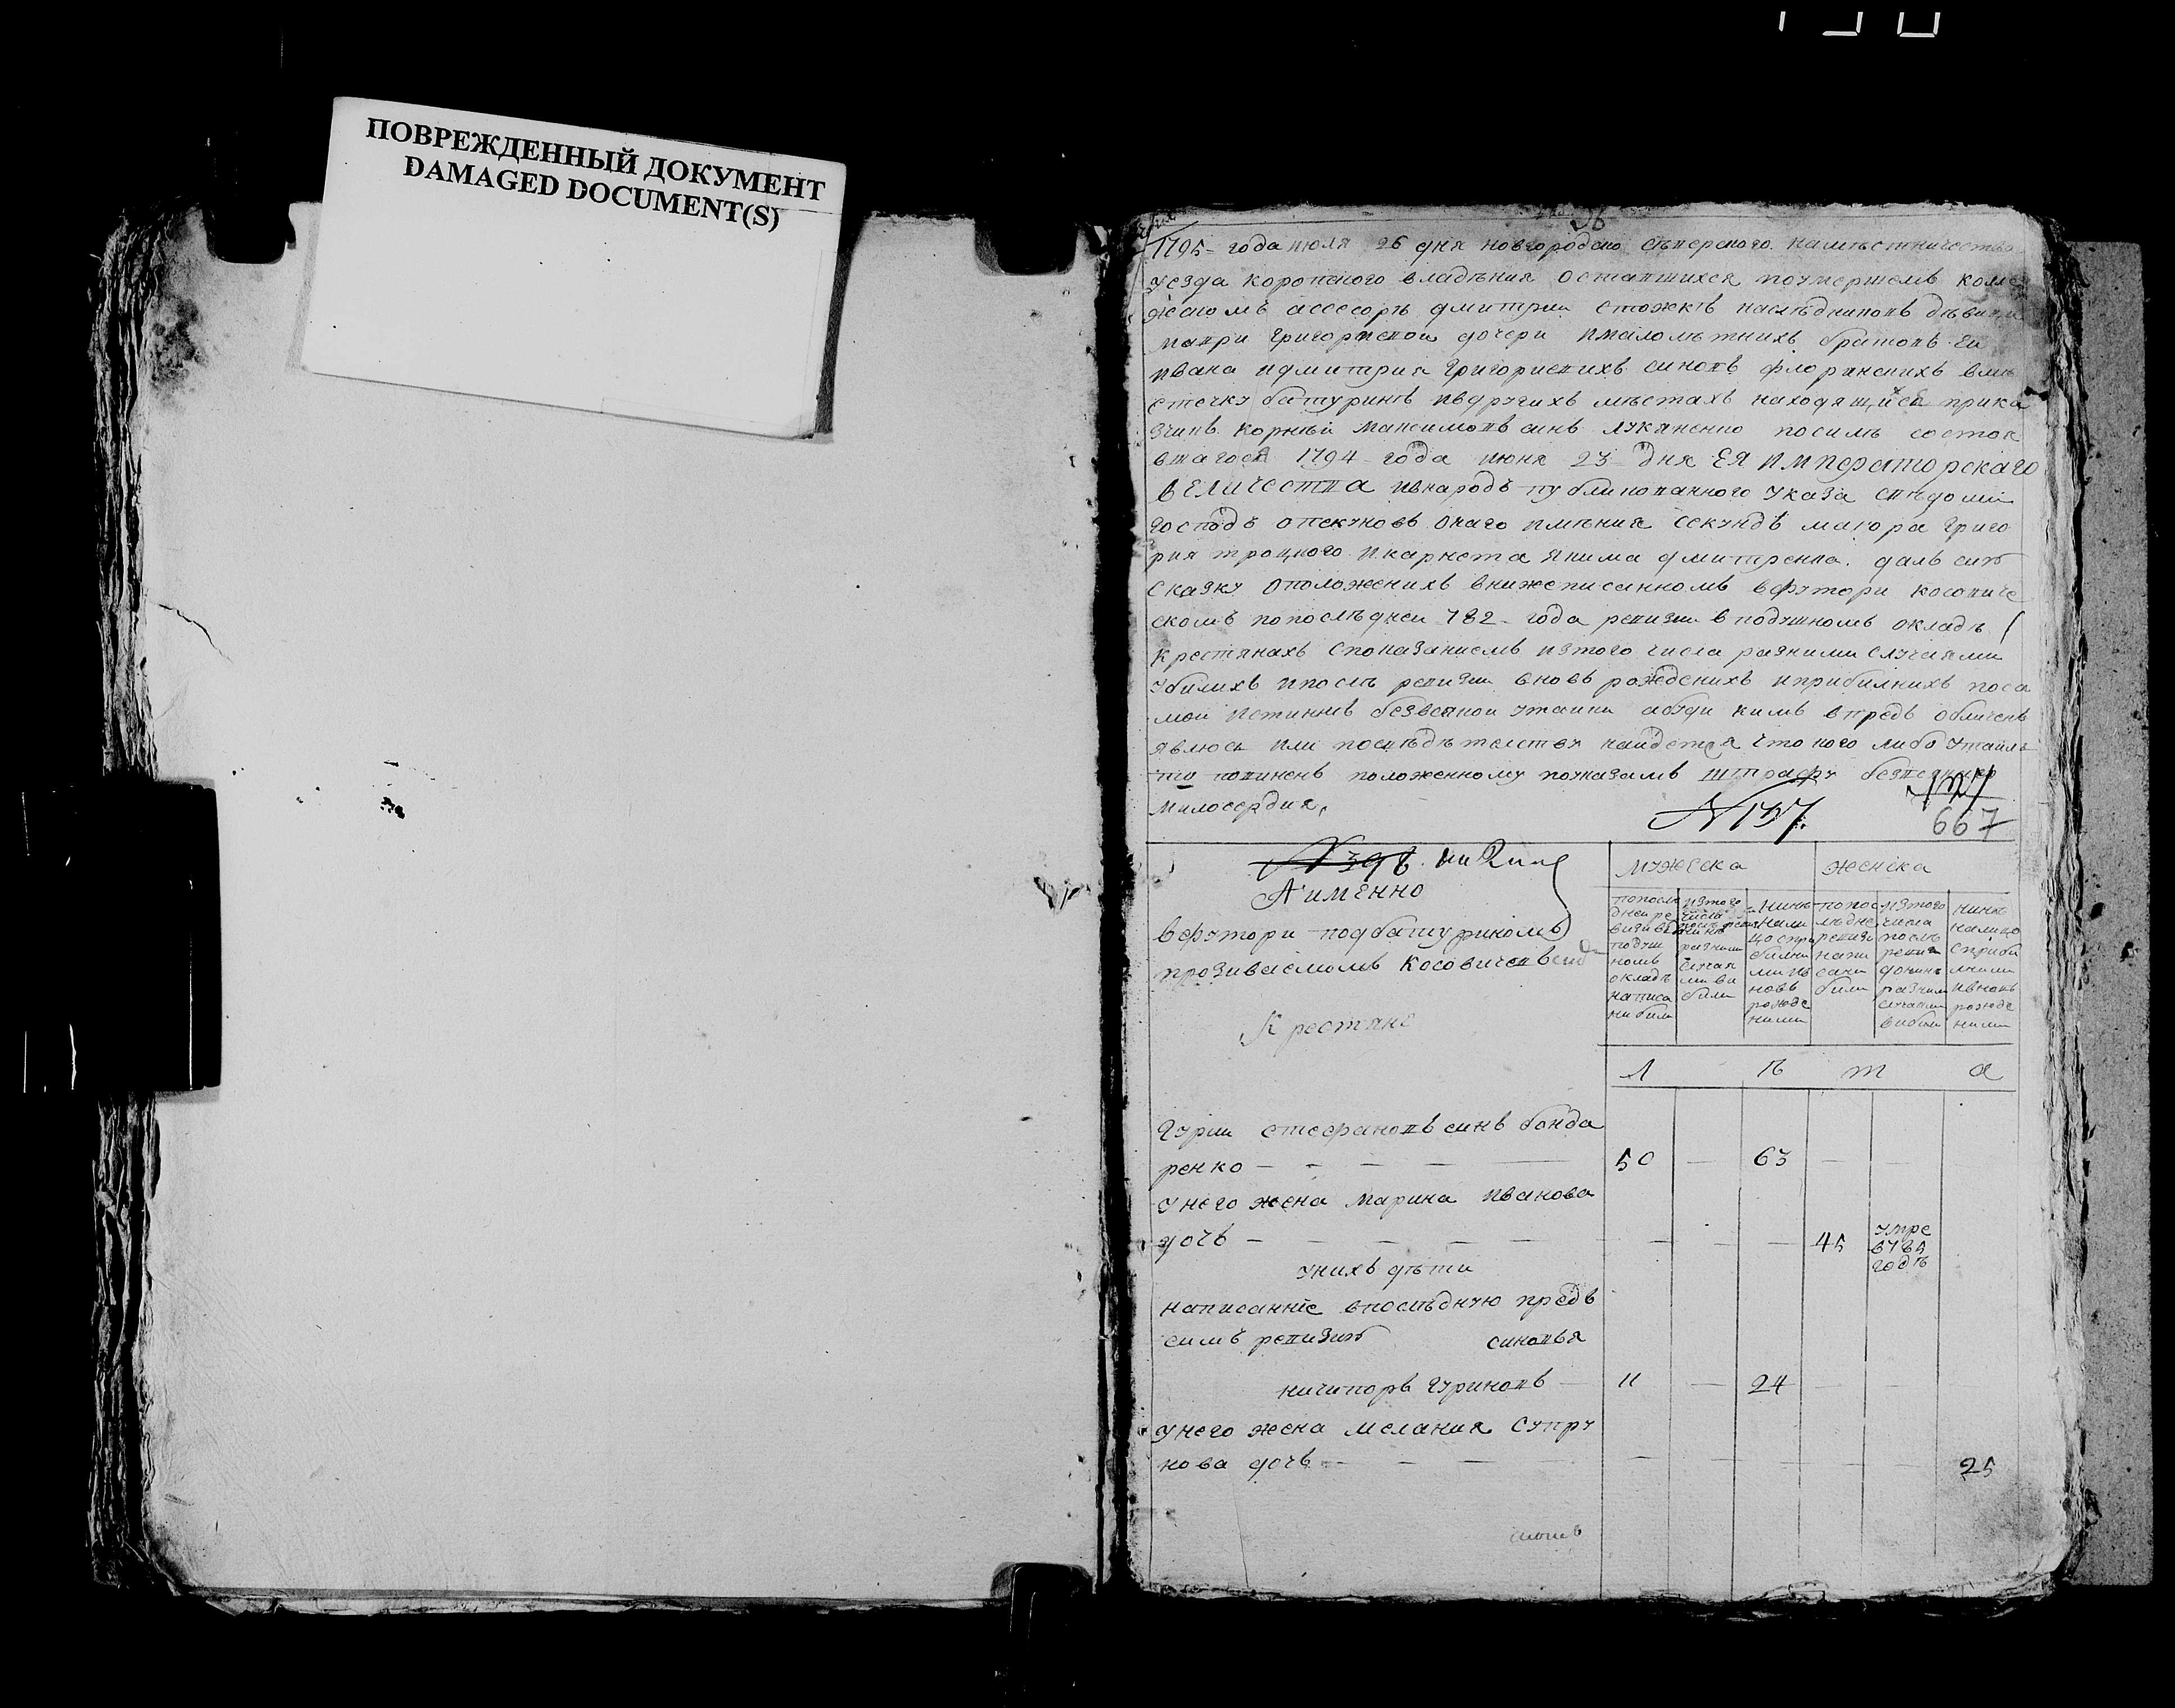 ПОВРЕЖДЕННЫЙ ДОКУМЕНТ
DAMAGED DOCUMENT(S)
1795 - года июля 26 дня новгородско сѣверского намѣстничества
уезда коропского владѣния оставшихся поумершемъ колле
жскомъ ассесорѣ дмитрии стожкѣ наслѣдниковъ дѣвици
марии григориевой дочери ималолѣтнихъ братовъ ей
ивана идмитрия григориевихъ синовъ флоринскихъ вмѣ
стечку батуринѣ ивдругихъ мѣстахъ находящихся прика
зчикъ корнѣй максимовъ синъ лукяненко посилѣ состоя
вшагося 1794 - года июня 23 дня ЕЯ императорскаго
величества ивнародъ публикованного указа свѣдомя
господъ опекуновъ онаго имѣния секундъ маиора григо
рия троцкого икорнета якима дмитренка. далъ сию
сказку оположенихъ внижеписанномъ вфутори косовиче
скомъ попослѣдней 782 - года ревизии в подушномъ окладѣ
крестянахъ споказаниемъ изтого числа разними случаями
убилихъ ипослѣ ревизии вновь рожденихъ иприбилихъ поса
мой истиннѣ безвсякой утайки абуди кимъ впредь обличенъ
явлюсь или посвѣдѣтелству найдется что кого либо утаилъ
то повиненъ положенному поуказамъ штрафу безвсякаго
милосердия,
N 137.
667
А именно
вфутори подбатуриномъ
прозиваемомъ косовичевѣ
Крестяне
мужеска женска
попослѣ
дней ре
визии в
подуш
номъ
окладѣ
написа
ни били
изтого
числа
разними
случая
ми ви
били
нинѣ
нали
цо спри
билими
ми ив
новь
рожде
ними
попос
лѣдней
ревизи
напи
сани
били
изтого
числа
послѣ
ревизи
донинѣ
разними
случаями
вибили
нинѣ
налицо
сприби
лими
ивновь
рожде
ними
Л ѣ т а
Гурий стефановъ синъ бонда
ренко 50 63
унего жена марина иванова
дочь 45 умре
в785
годѣ
унихъ дѣти
написаннїе впослѣдную предъ
симъ ревизию синовья
ничипоръ гуриновъ 11 24
унего жена мелания супру
нова дочь 25